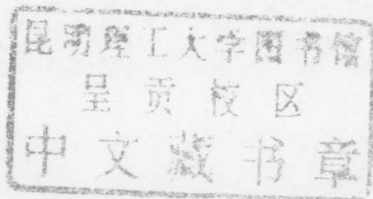 昆明理工大学图书馆
呈贡校区
中文藏书章